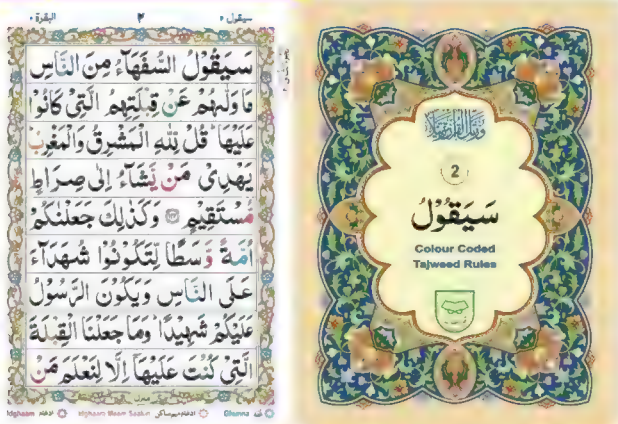 سيقول ٢
٢
البقرة ٢
سَيَقُوْلُ السُّفَهَآءُ مِنَ النَّاسِ
مَا وَلّٰىهُمْ عَنْ قِبْلَتِهِمُ الَّتِىْ كَانُوْا
عَلَيْهَا ؕ قُلْ لِّلّٰهِ الْمَشْرِقُ وَالْمَغْرِبُ
يَهْدِىْ مَنْ يَّشَآءُ اِلٰى صِرَاطٍ
مُّسْتَقِيْمٍ ۝ وَكَذٰلِكَ جَعَلْنٰكُمْ
اُمَّةً وَّسَطًا لِّتَكُوْنُوْا شُهَدَآءَ
عَلَى النَّاسِ وَيَكُوْنَ الرَّسُوْلُ
عَلَيْكُمْ شَهِيْدًا ؕ وَمَا جَعَلْنَا الْقِبْلَةَ
الَّتِىْ كُنْتَ عَلَيْهَآ اِلَّا لِنَعْلَمَ مَنْ
Idghaam ادغام Idghaam Meem Saakin ادغام ميم ساكن Ghunna غنه
ورتل القرآن ترتيلا
2
سَيَقُوْلُ
Colour Coded
Tajweed Rules